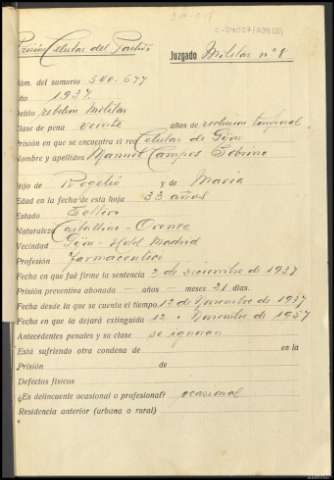 Prisión Celular del Partido
Juzgado Militar nº 8
Núm. del sumario 500.677
Año 1937
Delito rebelion Militar
Clase de pena veinte años de reclusion temporal
Prisión en que se encuentra el reo Celular de Gijon
Nombre y apellidos Manuel Campos Sobrino
Hijo de Rogelio y de Maria
Edad en la fecha de esta hoja 33 años
Estado Soltero
Naturaleza Orense
Vecindad Gijon Madrid
Profesión Farmaceutico
Fecha en que fué firme la sentencia 2 de diciembre de 1937
Prisión preventiva abonada — años — meses 21 dias.
Fecha desde la que se cuenta el tiempo 12 de Noviembre de 1937
Fecha en que la dejará extinguida 12 Noviembre de 1957
Antecedentes penales y su clase se ignoran
Está sufriendo otra condena de en la
Prisión de
Defectos físicos
¿Es delincuente ocasional o profesional? ocasional
Residencia anterior (urbana o rural)